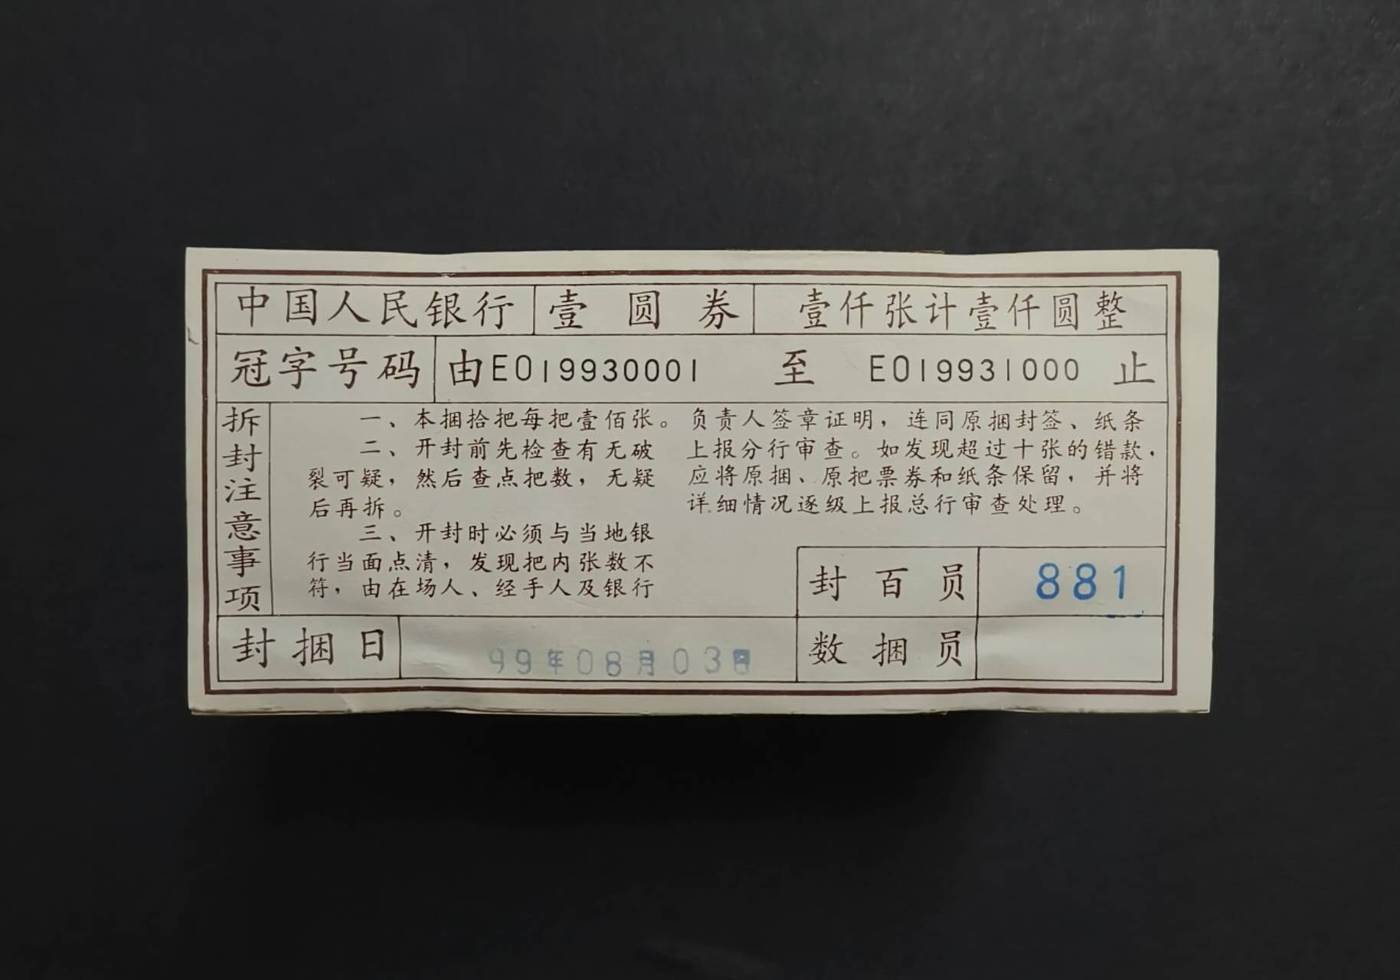 中国人民银行 壹圆券 壹仟张计壹仟圆整
冠字号码 由E019930001 至 E019931000 止
拆封注意事项
一、本捆拾把每把壹佰张。
二、开封前先检查有无破
裂可疑，然后查点把数，无疑
后再拆。
三、开封时必须与当地银
行当面点清，发现把内张数不
符，由在场人、经手人及银行
负责人签章证明，连同原捆封签、纸条
上报分行审查。如发现超过十张的错款，
应将原捆、原把票券和纸条保留，并将
详细情况逐级上报总行审查处理。
封百员 881
封捆日 99年08月03日 数捆员